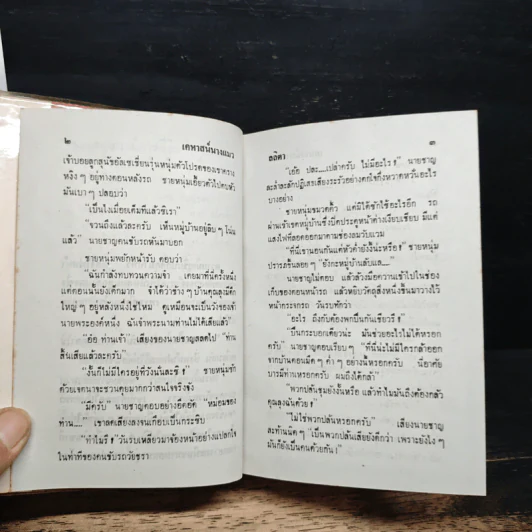 ๒ เคหาสน์นางแมว
เจ้าบอยลูกสุนัขอัลเซเชี่ยนรุ่นหนุ่มตัวโปรดของเขาคราง
หงิง ๆ อยู่ทางตอนหลังรถ ชายหนุ่มเอี้ยวตัวไปตบหัว
มันเบา ๆ ปลอบว่า
“เป็นไงเมื่อยเต็มทีแล้วซิเรา”
“จวนถึงแล้วละครับ เห็นหมู่บ้านอยู่ลิบ ๆ โน่น
แล้ว” นายชาญคนขับรถหันมาบอก
ชายหนุ่มพยักหน้ารับ ตอบว่า
“ฉันกำลังทบทวนความจำ เคยมาที่นี่ครั้งหนึ่ง
แต่ตอนนั้นยังเด็กมาก จำได้ว่าข้าง ๆ บ้านคุณลุงมีตึก
ใหญ่ ๆ อยู่หลังหนึ่งใช่ไหม ดูเหมือนจะเป็นวังของเจ้า
นายพระองค์หนึ่ง ฉันจำพระนามท่านไม่ได้เสียแล้ว”
“อ๋อ ท่านเจ้า” เสียงของนายชาญสลดไป “ท่าน
สิ้นเสียแล้วละครับ”
“งั้นก็ไม่มีใครอยู่ที่วังนั่นละซิ !” ชายหนุ่มซัก
ด้วยเจตนาจะชวนคุยมากกว่าสนใจจริงจัง
“มีครับ” นายชาญตอบอย่างอึดอัด “หม่อมของ
ท่าน....” เขาลดเสียงลงจนเกือบเป็นกระซิบ
“ทำไมรึ !” วันรบเหลียวมาจ้องหน้าอย่างแปลกใจ
ในท่าทีของคนขับรถวัยชรา
ลลิตา ๓
“เอ้อ ปละ....เปล่าครับ ไม่มีอะไร !” นายชาญ
ละล่ำละลักปฏิเสธเสียงระรัวอย่างตกใจกึ่งหวาดหวั่นอะไร
บางอย่าง
ชายหนุ่มขมวดคิ้ว แต่มิได้ซักไซ้อะไรอีก รถ
ผ่านเข้าเขตหมู่บ้านซึ่งปิดประตูหน้าต่างเงียบเชียบ มีแต่
แสงไฟที่ลอดออกมาตามช่องลมวับแวม
“ที่นี่เขานอนกันแต่หัวค่ำยังงี้น่ะหรือ !” ชายหนุ่ม
ปรารภขึ้นลอย ๆ “ยังกะหมู่บ้านลับแล....”
นายชาญไม่ตอบ แล้วล้วงมือควานเข้าไปในช่อง
เก็บของตอนหน้ารถ แล้วหยิบวัตถุสิ่งหนึ่งขึ้นมาวางไว้
หน้ากระจกรถ วันรบทักว่า
“อะไร ถึงกับต้องพกปืนกันเชียวรึ !”
“ปืนกระบอกเดียวน่ะ มันช่วยอะไรไม่ได้หรอก
ครับ” นายชาญตอบเรียบ ๆ “ที่นี่น่ะไม่มีใครกล้าออก
จากบ้านตอนมืด ๆ ค่ำ ๆ อย่างนี้หรอกครับ นี่อาศัย
บารมีท่านเหรอกครับ ผมถึงได้กล้า”
“พวกปล้นชุมยังงั้นหรือ แล้วทำไมมันถึงต้องกลัว
คุณลุงฉันด้วย”
“ไม่ใช่พวกปล้นหรอกครับ” เสียงนายชาญ
สะท้านนิด ๆ “เป็นพวกปล้นเสียยังดีกว่า เพราะยังไง ๆ
มันก็ยังเป็นคนด้วยกัน !